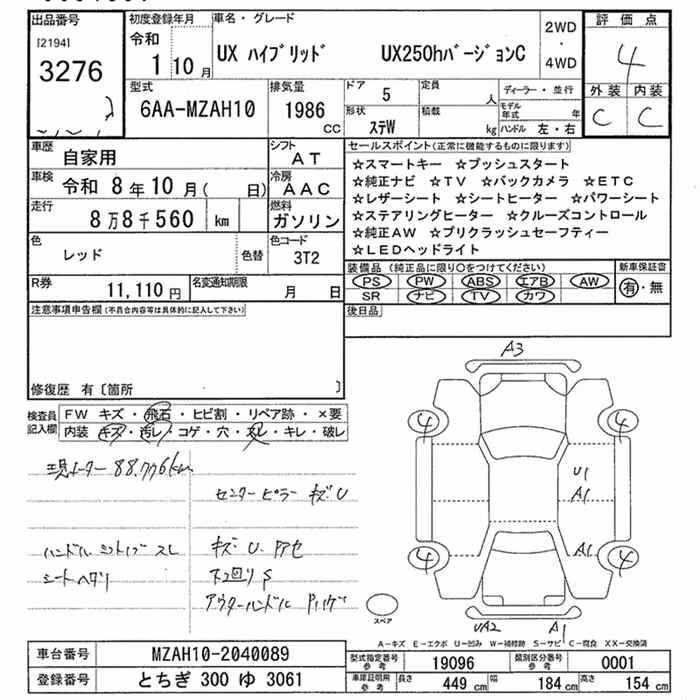 出品番号
[2194]
3276
初度登録年月
令和
1 10 月
車名・グレード
UX ハイブリッド UX250hバージョンC
2WD
・
4WD
評価点
4
外装 内装
C C
型式
6AA-MZAH10
排気量
1986
CC
ドア 5
形状 ステW
定員 人
積載 kg
ディーラー・並行
モデル年式 年
ハンドル 左・右
車歴 自家用
シフト AT
車検 令和 8年10月( 日)
冷房 AAC
走行 8万8千560 km
燃料 ガソリン
色 レッド 色替
色コード 3T2
R券 11,110 円
名変通知期限 月 日
セールスポイント(正常に機能するものに限ります)
☆スマートキー ☆プッシュスタート
☆純正ナビ ☆TV ☆バックカメラ ☆ETC
☆レザーシート ☆シートヒーター ☆パワーシート
☆ステアリングヒーター ☆クルーズコントロール
☆純正AW ☆プリクラッシュセーフティー
☆LEDヘッドライト
装備品(純正品に限り○をつけてください)
新車保証書
PS PW ABS エアB AW
SR ナビ TV カワ
有・無
後日品
注意事項申告欄(不具合内容等は具体的に記入して下さい)
修復歴 有〔箇所 〕
検査員記入欄
FW キズ・飛石・ヒビ割・リペア跡・×要
内装 キズ・汚レ・コゲ・穴・スレ・キレ・破レ
現メーター 88,776km
センターピラー キズU
ハンドル シフトノブ スレ
キズ・U
シートヘタリ
下回りS
アウターハンドル
A3
4 4
U1
A1
4 A1 4
UA2 A1
スペア
A-キズ E-エクボ U-凹み W-補修跡 S-サビ C-腐食 XX-交換済
車台番号 MZAH10-2040089
登録番号 とちぎ 300 ゆ 3061
型式指定番号 参考 19096
類別区分番号 参考 0001
車庫証明用 参考
長さ 449 cm 幅 184 cm 高さ 154 cm